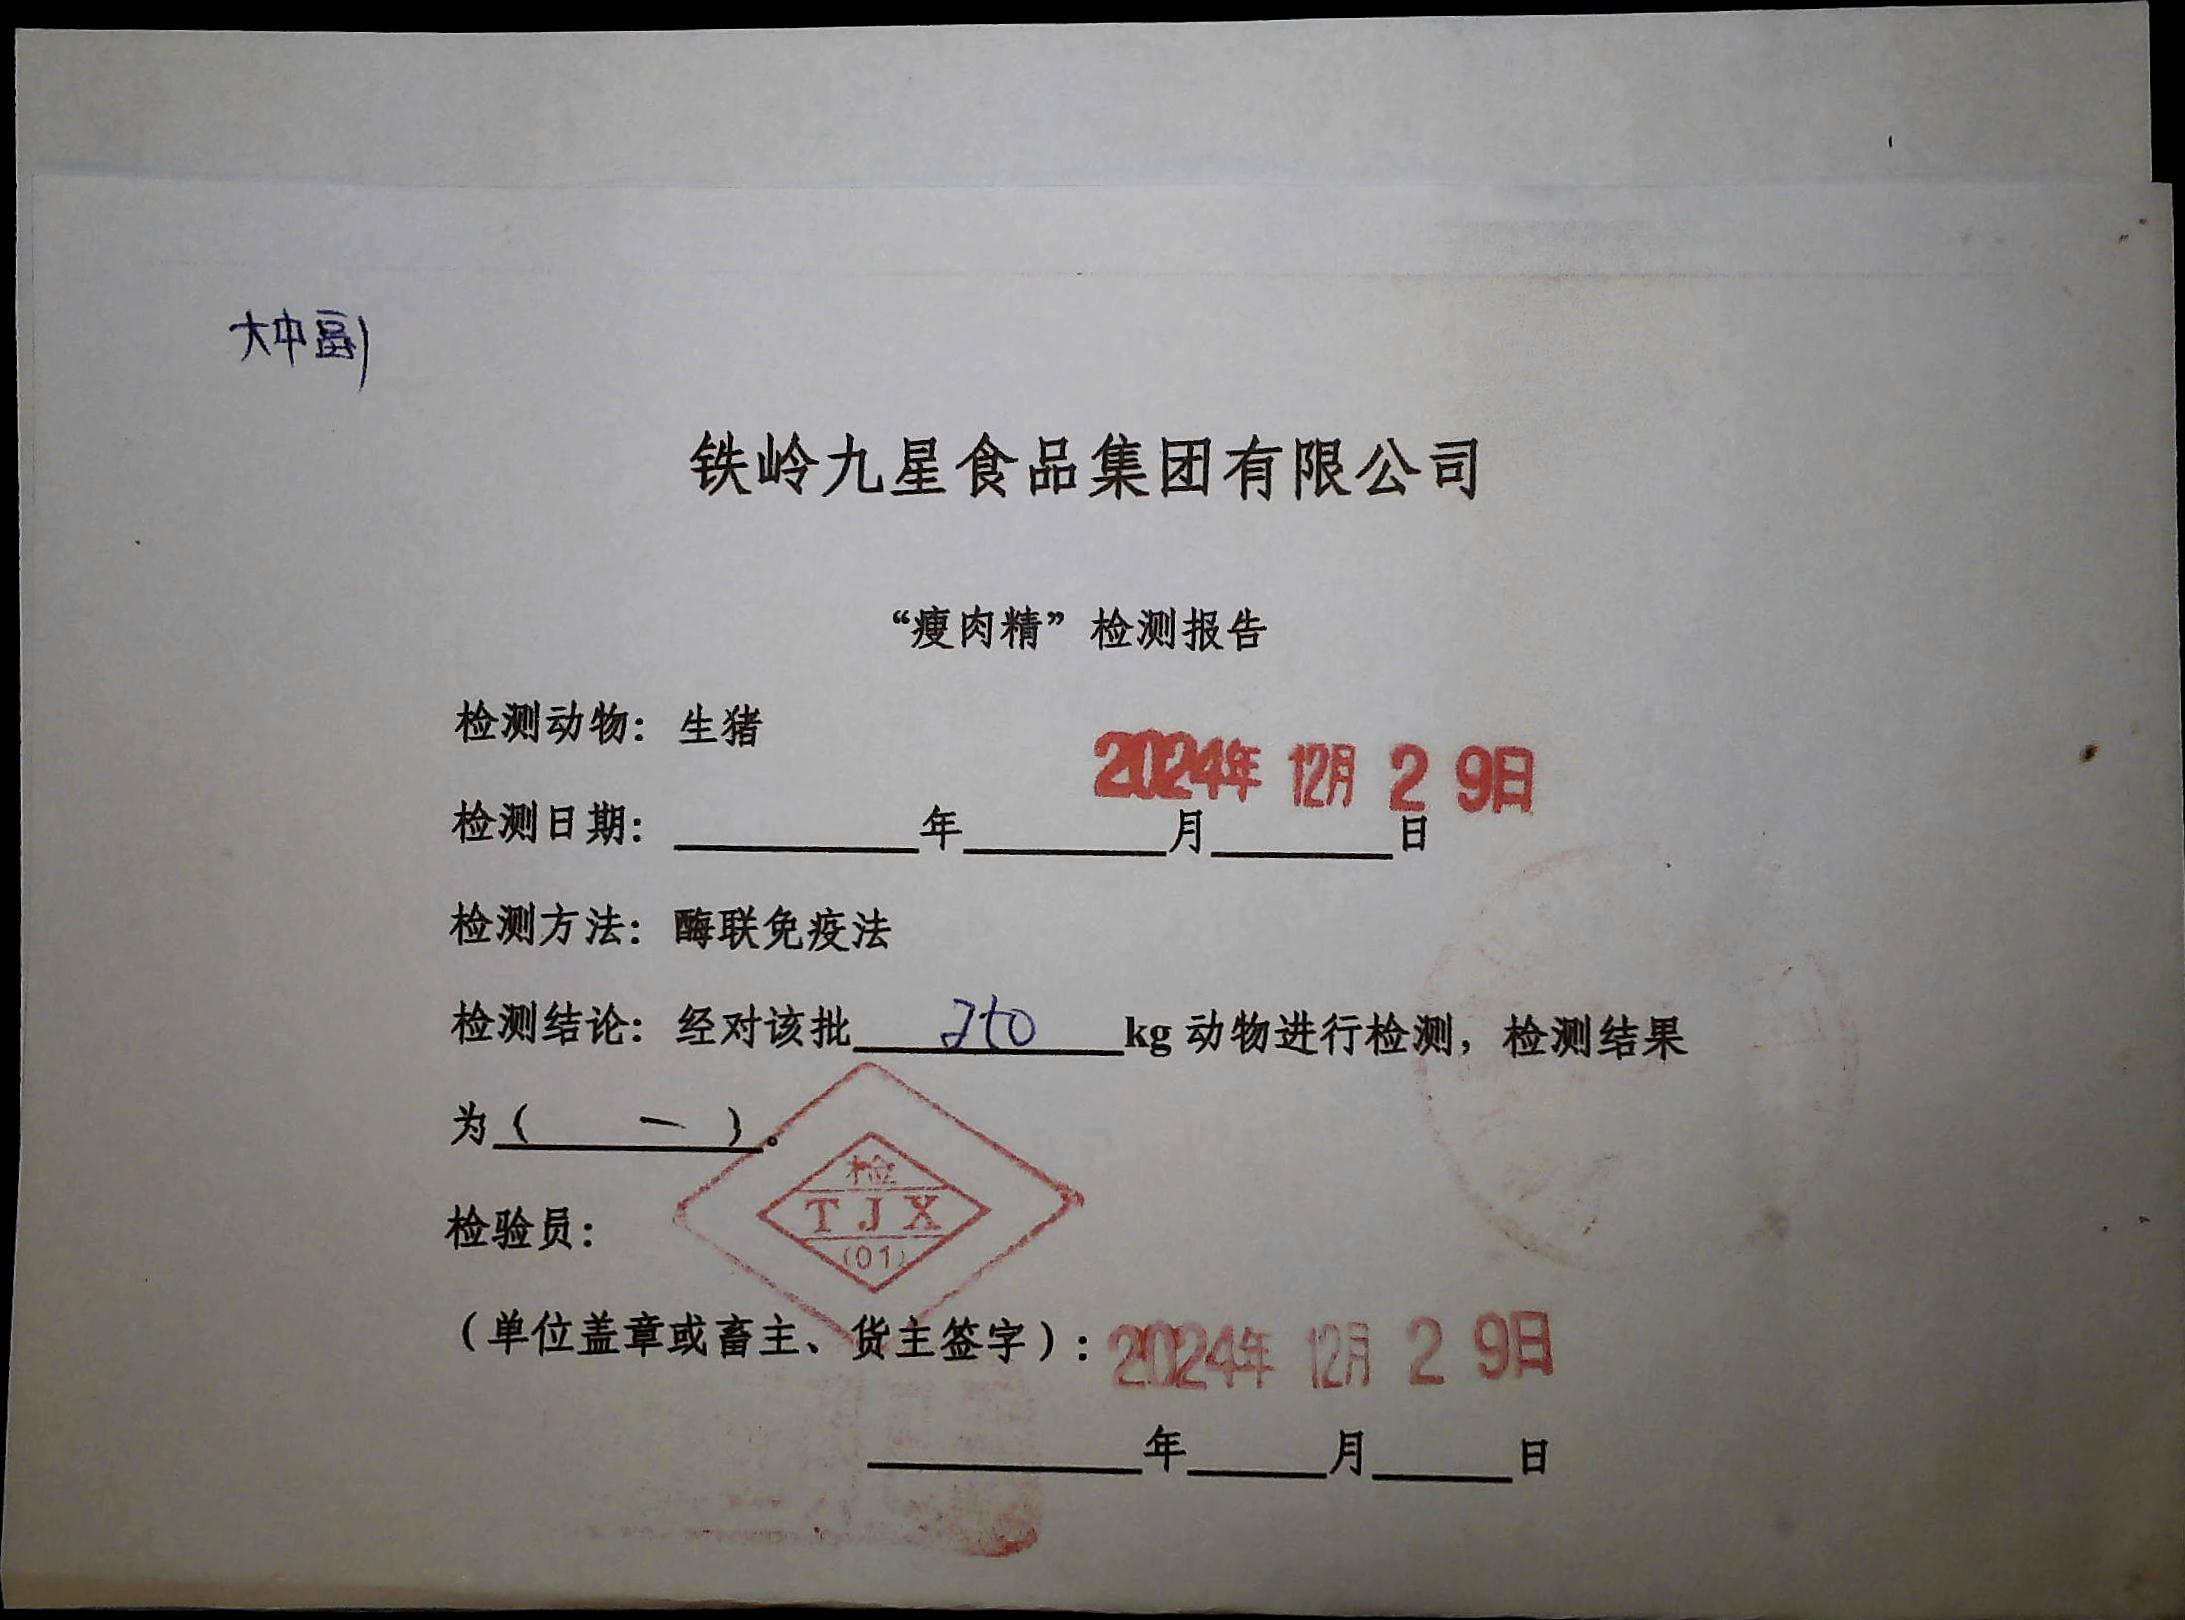 大中副
铁岭九星食品集团有限公司
“瘦肉精”检测报告
检测动物：生猪
2024年 12月 2 9日
检测日期：____年____月____日
检测方法：酶联免疫法
检测结论：经对该批____kg 动物进行检测，检测结果
为（ — ）。
检
TJX
(01)
检验员：
（单位盖章或畜主、货主签字）：2024年 12月 2 9日
____年____月____日